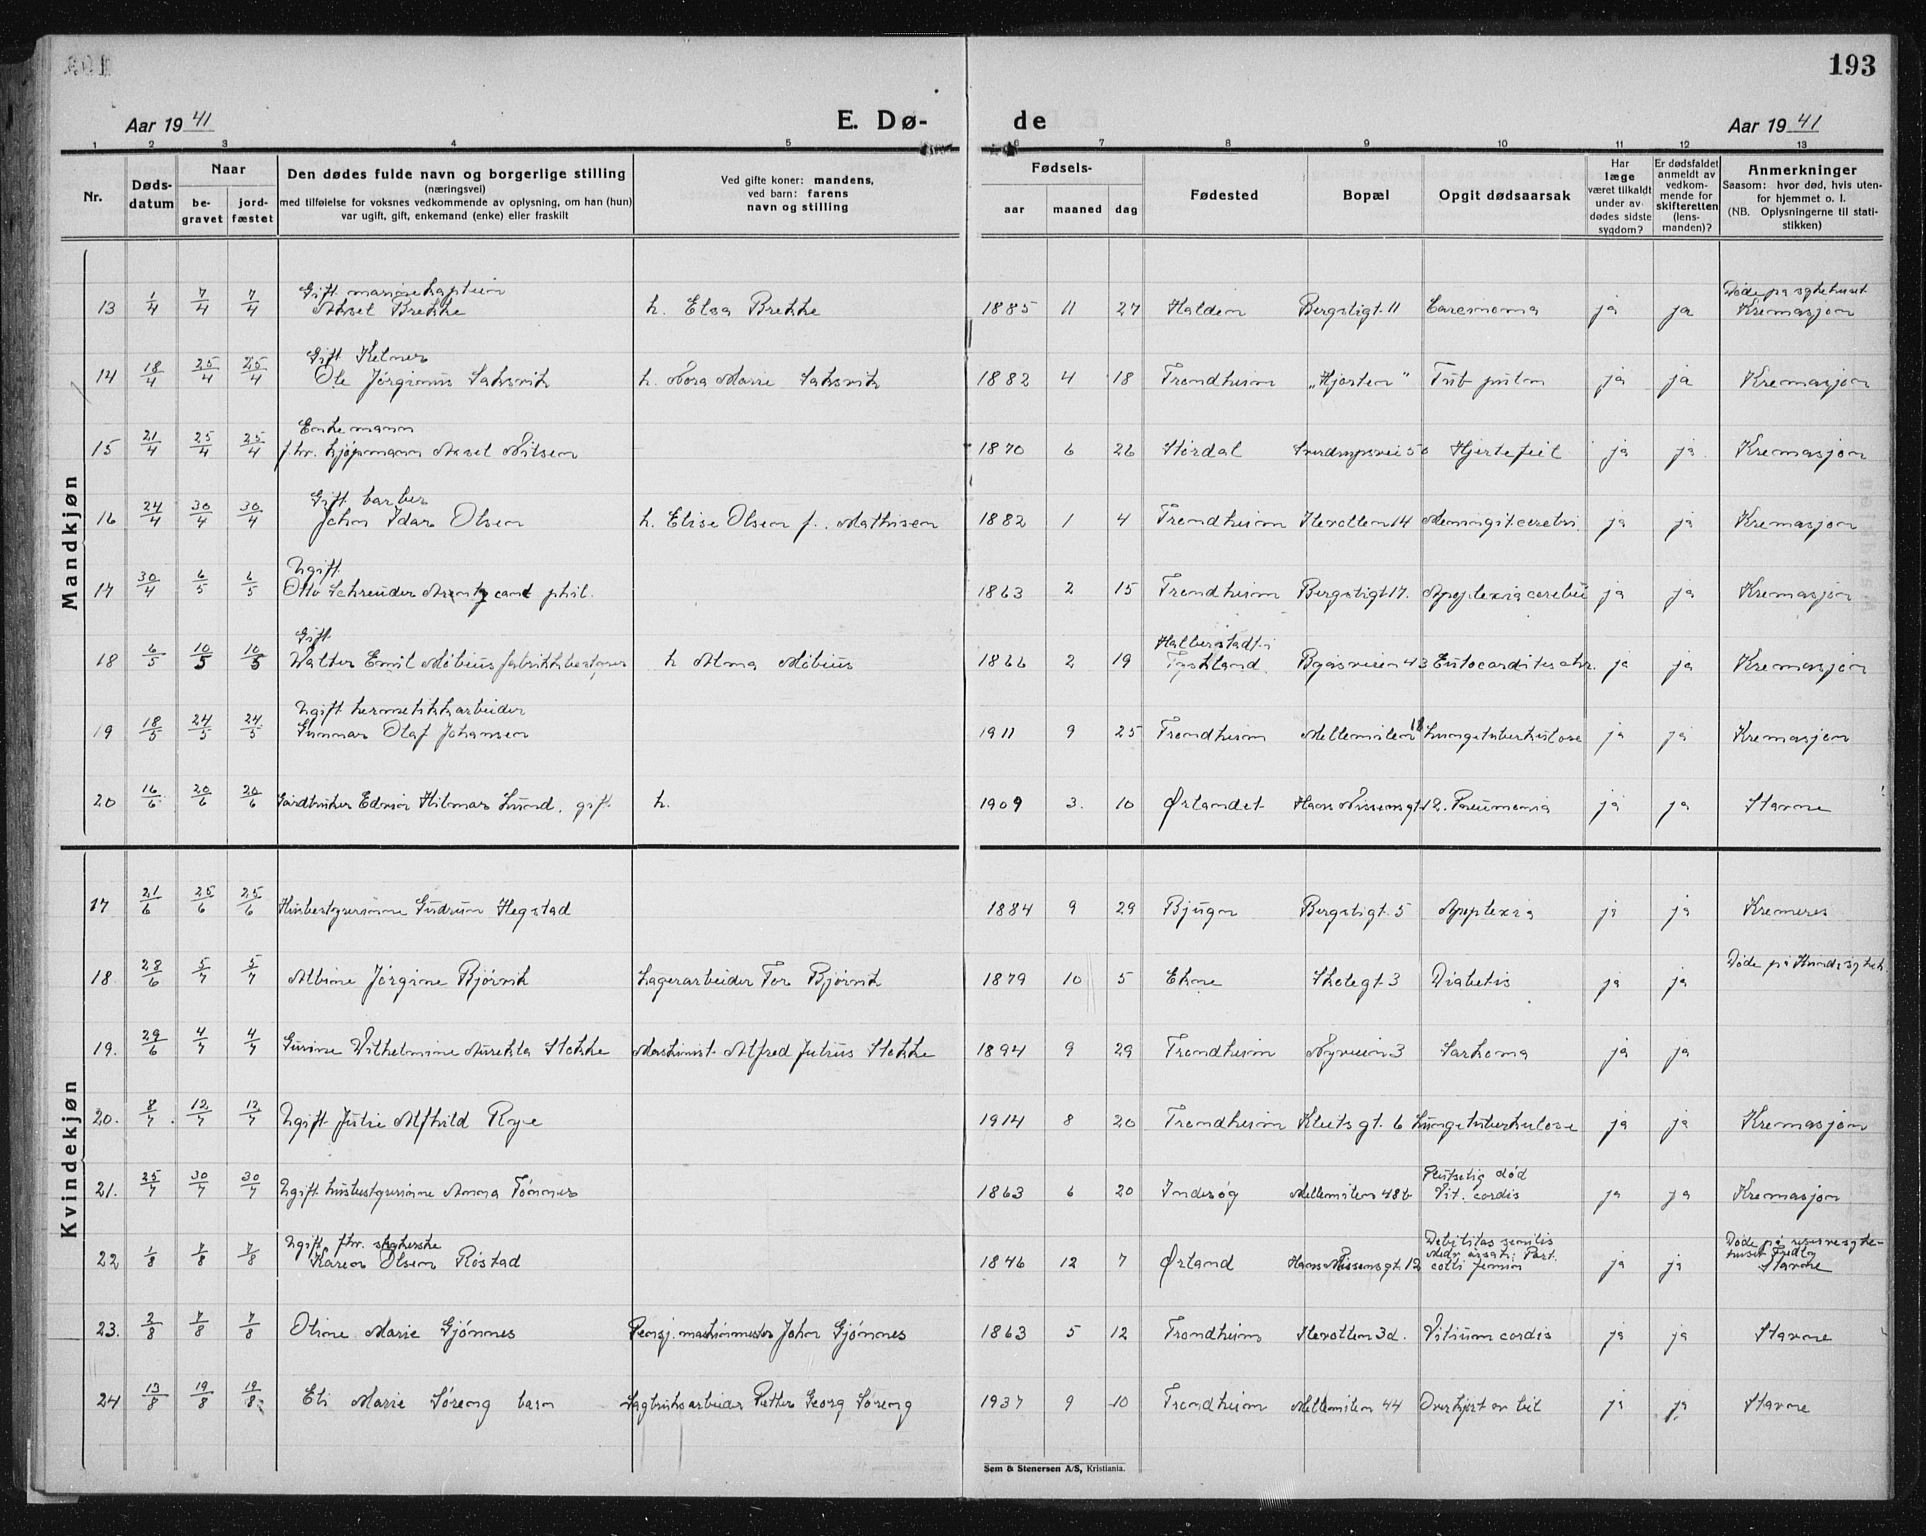 193
Aar 19 41 E. Dø- de Aar 19 41
1 2 3 4 5 6 7 8 9 10 11 12 13
Nr. Døds-datum Naar be-gravet jord-fæstet Den dødes fulde navn og borgerlige stilling (næringsvei) med tilføielse for voksnes vedkommende av oplysning, om han (hun) var ugift, gift, enkemand (enke) eller fraskilt Ved gifte koner: mandens, ved barn: farens navn og stilling Fødsels- aar maaned dag Fødested Bopæl Opgit dødsaarsak Har læge været tilkaldt under av-dødes sidste sygdom? Er dødsfaldet anmeldt av vedkom-mende for skifteretten (lens-manden)? Anmerkninger Saasom: hvor død, hvis uten-for hjemmet o. l. (NB. Oplysningerne til stati-stikken)
Mandkjøn
Gift marinekaptein Døde på sykehuset
13 1/4 7/4 7/4 Aksel Brekke h. Elsa Brekke 1885 11 27 Halden Bergsligt. 11 ja ja Kremasjon
Gift Kelner
14 18/4 25/4 25/4 Ole Jørginus Saksvik h. Nora Marie Saksvik 1882 4 18 Trondheim „Hjorten" Tub. pulm ja ja Kremasjon
Enkemann
15 21/4 25/4 25/4 f.hv. kjøpmann Aksel Nilsen 1870 6 26 Stördal Sverdrupsvei 5 Hjertefeil ja ja Kremasjon
Gift barber
16 24/4 30/4 30/4 John Idar Olsen h. Elise Olsen f. Mathisen 1882 1 4 Trondheim Ilevollen 14 Meningit cerebri ja ja Kremasjon
Ugift
17 30/4 6/5 6/5 Otto Schreuder Arentz cand phil. 1863 2 15 Trondheim Bergsligt 17. Apoplexia cerebri ja ja Kremasjon
Gift Halberstadt i
18 6/5 10/5 10/5 Walter Emil Möbius fabrikkbestyrer h Alma Möbius 1866 2 19 Tyskland. Byåsveien 43 ja ja Kremasjon
Ugift hermetikkarbeider
19 18/5 24/5 24/5 Gunnar Olaf Johansen 1911 9 25 Trondheim Mellemilen 18 Lungetuberkulose ja ja Kremasjon
20 16/6 20/6 20/6 Gårdbruker Edvin Hilmar Lund. gift h. 1909 3. 10 Ørlandet Hans Nissensgt. 12. Pneumonia ja ja Stavne
Kvindekjøn
17 21/6 25/6 25/6 Husbestyrerinne Gudrun Hegstad 1884 9 29 Bjugn Bergsligt. 5 Apoplexia ja ja Kremeres
Døde på
18 28/6 5/7 5/7 Albine Jørgine Bjørvik Lagerarbeider Tor Bjørvik 1879 10 5 Ekne Skolegt. 3 Diabetis ja ja
19. 29/6 4/7 4/7 Gurine Vilhelmine Stokke Maskinist Alfred Julius Stokke 1894 9 29 Trondheim Nyveien 3 Sarkoma ja ja
20. 8/7 12/7 12/7 Ugift Julie Alfhild Rye 1914 8 20 Trondheim gt. 6 Lungetuberkulose ja ja Kremasjon
Plutselig död
21. 25/7 30/7 30/7 Ugift husbestyrerinne Anna Tönnes 1863 6 20 Inderøy Mellemilen 48b Vit. cordis ja ja Kremasjon
Ugift fhv. Debilitas senilis Døde på reservesyke-
22 1/8 7/8 7/8 Karen Olsen Röstad 1846 12 7 Ørland Hans Nissensgt. 12 colli femori ja ja Stavne
23. 2/8 7/8 7/8 Oline Marie Gjönnes Pensj. maskinmester John Gjönnes 1863 5 12 Trondheim Ilevollen 3d. Vitium cordis ja ja Stavne
24 13/8 19/8 19/8 Eli Marie Söreng barn Sagbruksarbeider Petter Georg Söreng 1937 9 10 Trondheim Mellemilen 44 Overkjørt av bil ja ja Stavne
Sem & Stenersen A/S, Kristiania.